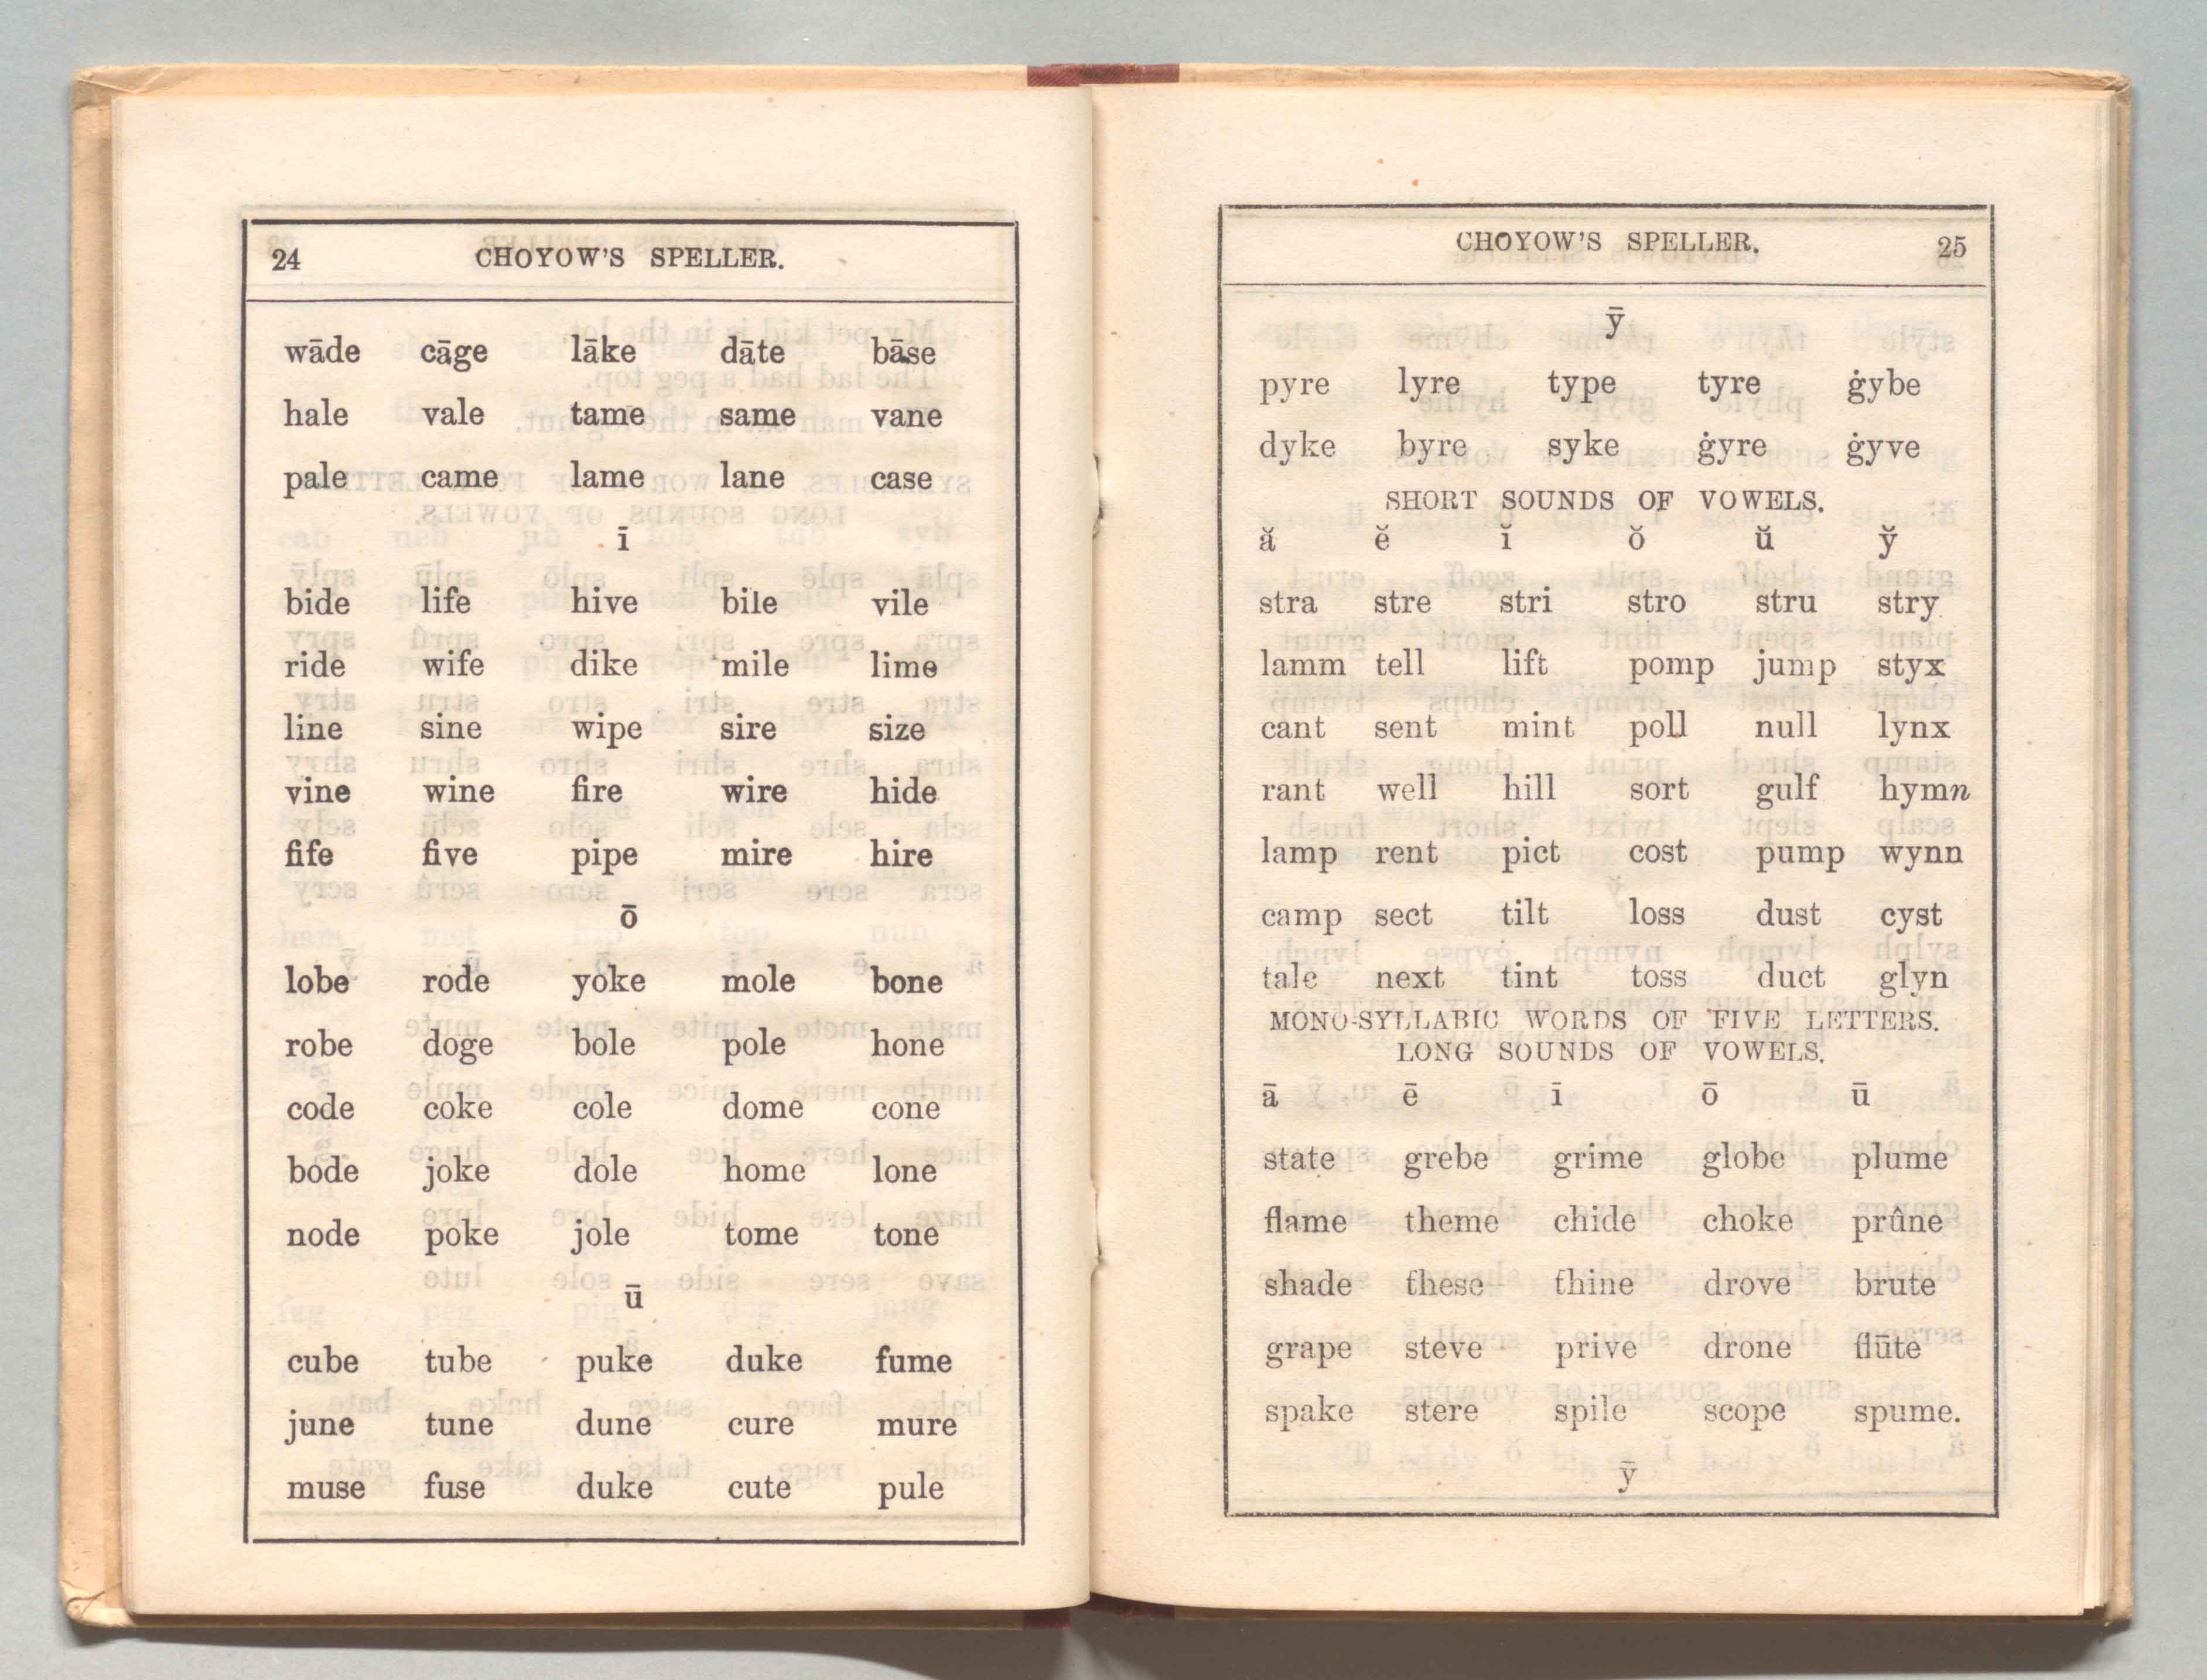 24 CHOYOW'S SPELLER.
wāde cāge lāke dāte bāse
hale vale tame same vane
pale came lame lane case
ī
bide life hive bile vile
ride wife dike mile lime
line sine wipe sire size
vine wine fire wire hide
fife five pipe mire hire
ō
lobe rode yoke mole bone
robe doge bole pole hone
code coke cole dome cone
bode joke dole home lone
node poke jole tome tone
ū
cube tube puke duke fume
june tune dune cure mure
muse fuse duke cute pule
CHOYOW'S SPELLER. 25
ȳ
pyre lyre type tyre ġybe
dyke byre syke ġyre ġyve
SHORT SOUNDS OF VOWELS.
ă ĕ ĭ ŏ ŭ y̆
stra stre stri stro stru stry
lamm tell lift pomp jump styx
cant sent mint poll null lynx
rant well hill sort gulf hymn
lamp rent pict cost pump wynn
camp sect tilt loss dust cyst
talc next tint toss duct glyn
MONO-SYLLABIC WORDS OF FIVE LETTERS.
LONG SOUNDS OF VOWELS.
ā ē ī ō ū
state grebe grime globe plume
flame theme chide choke prûne
shade these thine drove brute
grape steve prive drone flūte
spake stere spile scope spume.
ȳ